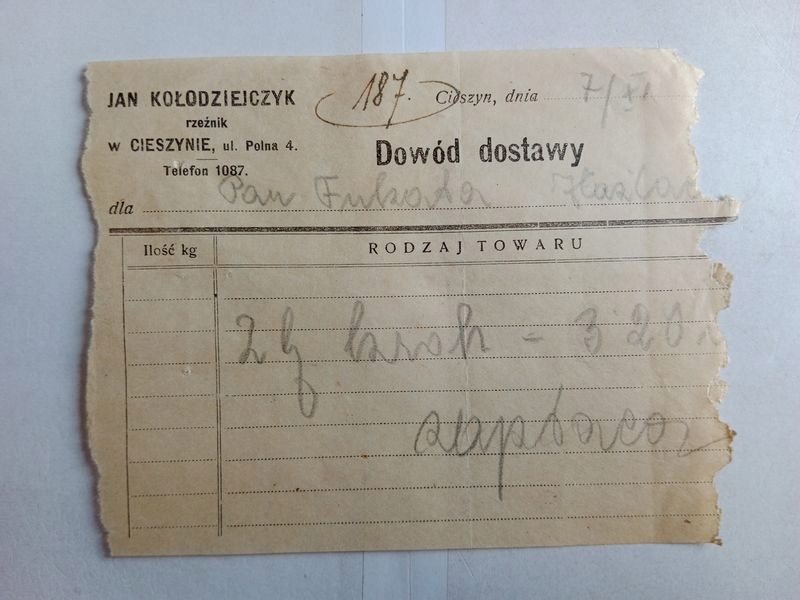 JAN KOŁODZIEJCZYK
rzeźnik
w CIESZYNIE, ul. Polna 4.
Telefon 1087.
187.
Cieszyn, dnia 7/XI
Dowód dostawy
dla Pan
Ilość kg
RODZAJ TOWARU
2 - 3 20